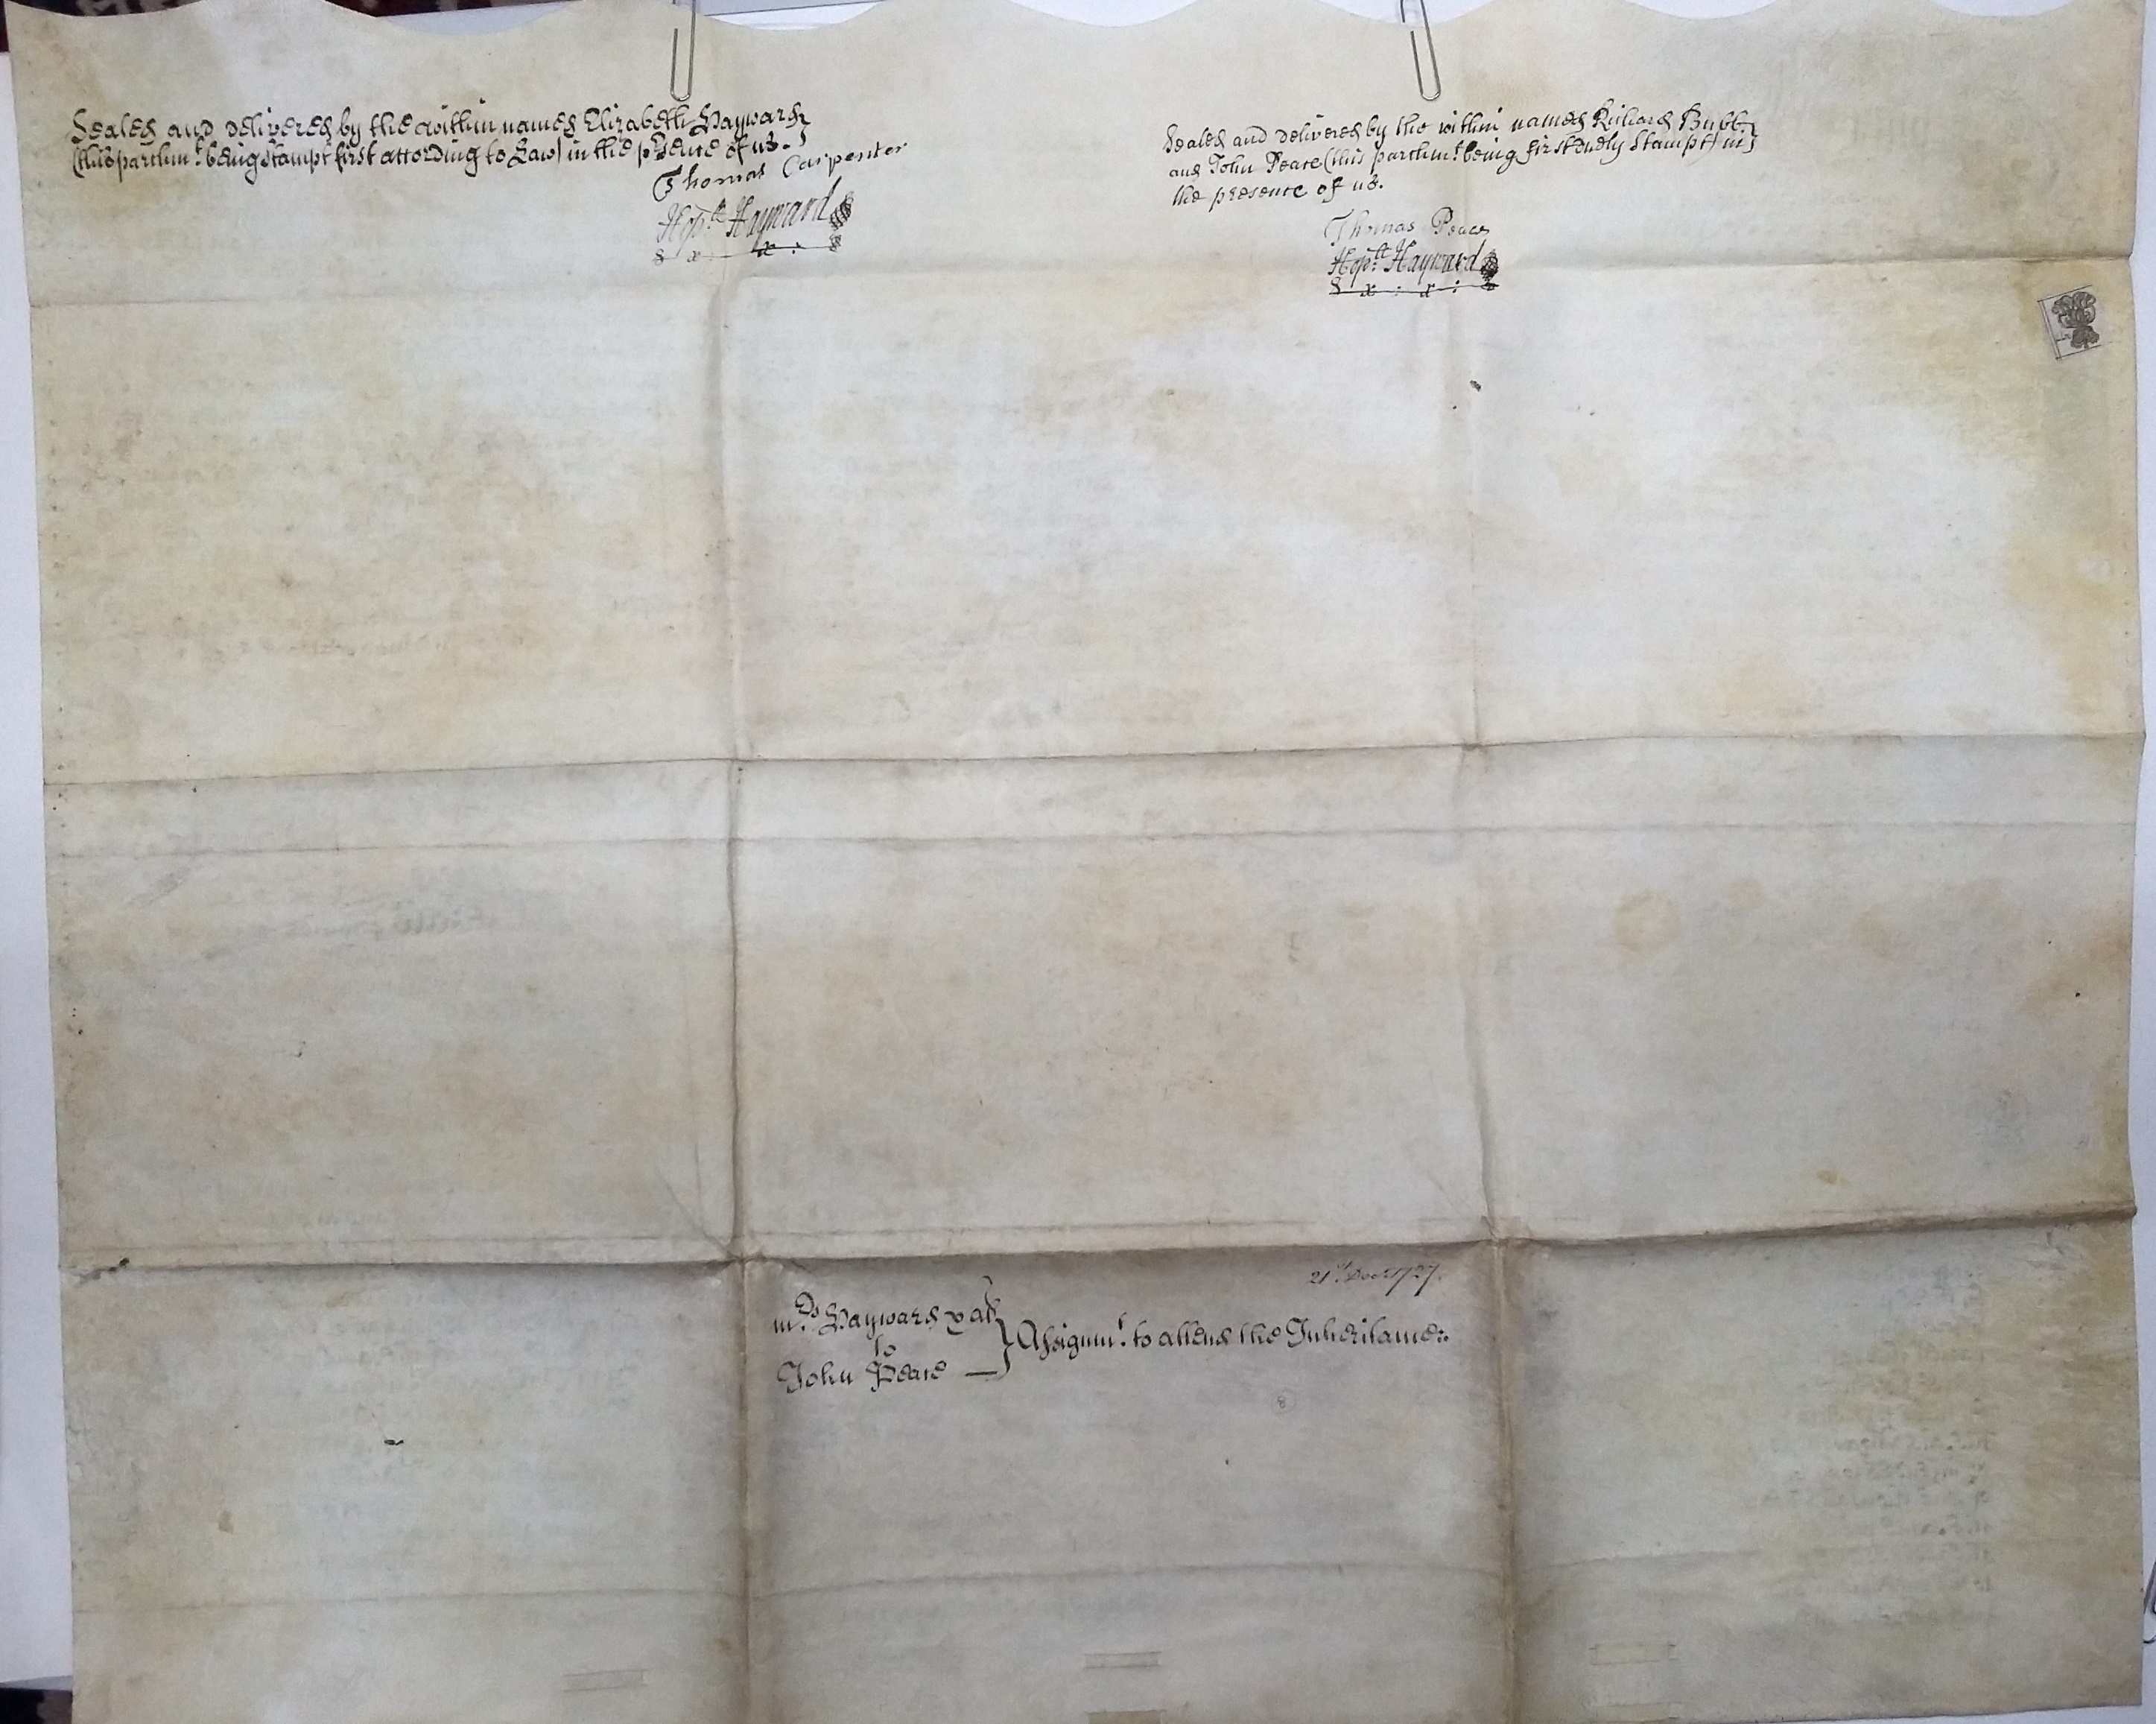 Sealed and delivered by the within named Elizabeth Hayward
(this parchmt. being stampt first according to Law) in the psence of us.
Thomas Carpenter
Hopt. Hayward
Sealed and delivered by the within named Richard Bubb
and John Peace (this parchmt. being first duly stampt) in
the presence of us.
Thomas Peace
Hopt. Hayward
21st. Decr. 1727.
Mrs. Hayward & als
to
John Peace
Assignmt. to attend the Inheritance.
8